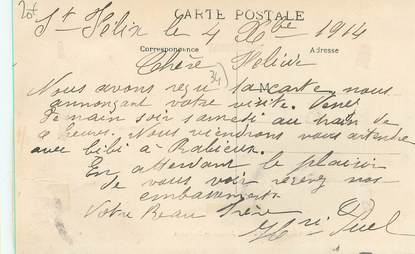 20f
CARTE POSTALE
St Félix le 4 Xbre 1914
Correspondance Adresse
Chère
Nous avons reçu ta carte nous
annonçant votre visite. Venez
demain soir samedi au train de
heures. Nous viendrons vous attendre
avec bibi à
En attendant le plaisir
de vous voir recevez nos
embrassements
Votre Beau frère
Hri Puel